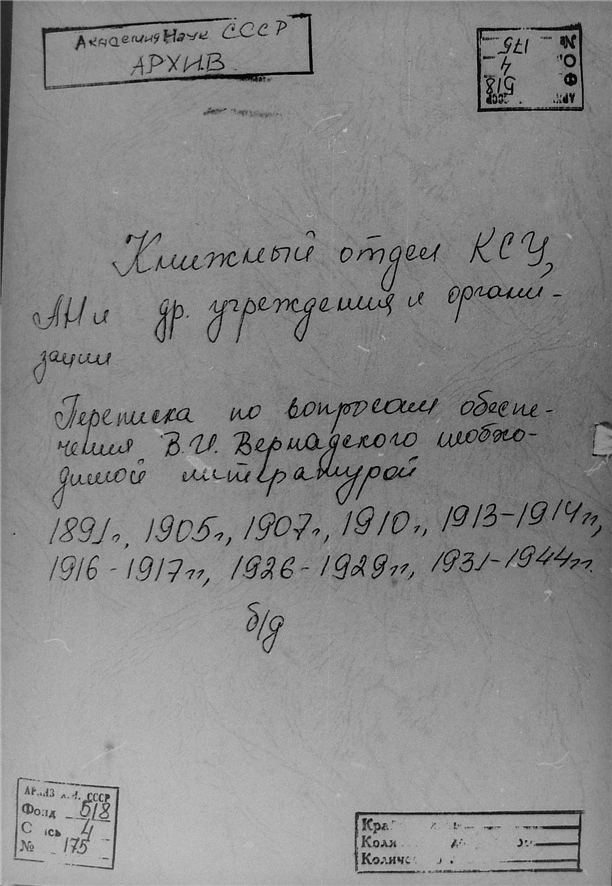 Академия Наук СССР
АРХИВ
№ 175
О 4
Ф 518
АР СССР
Книжный отдел КСУ,
АН и др. учреждения и органи-
зации
Переписка по вопросам обеспе-
чения В.И. Вернадского необхо-
димой литературой
1891г., 1905г., 1907г., 1910г., 1913-1914гг.,
1916-1917гг., 1926-1929гг., 1931-1944гг.
б/д
СССР
Фонд 518
4
№ 175